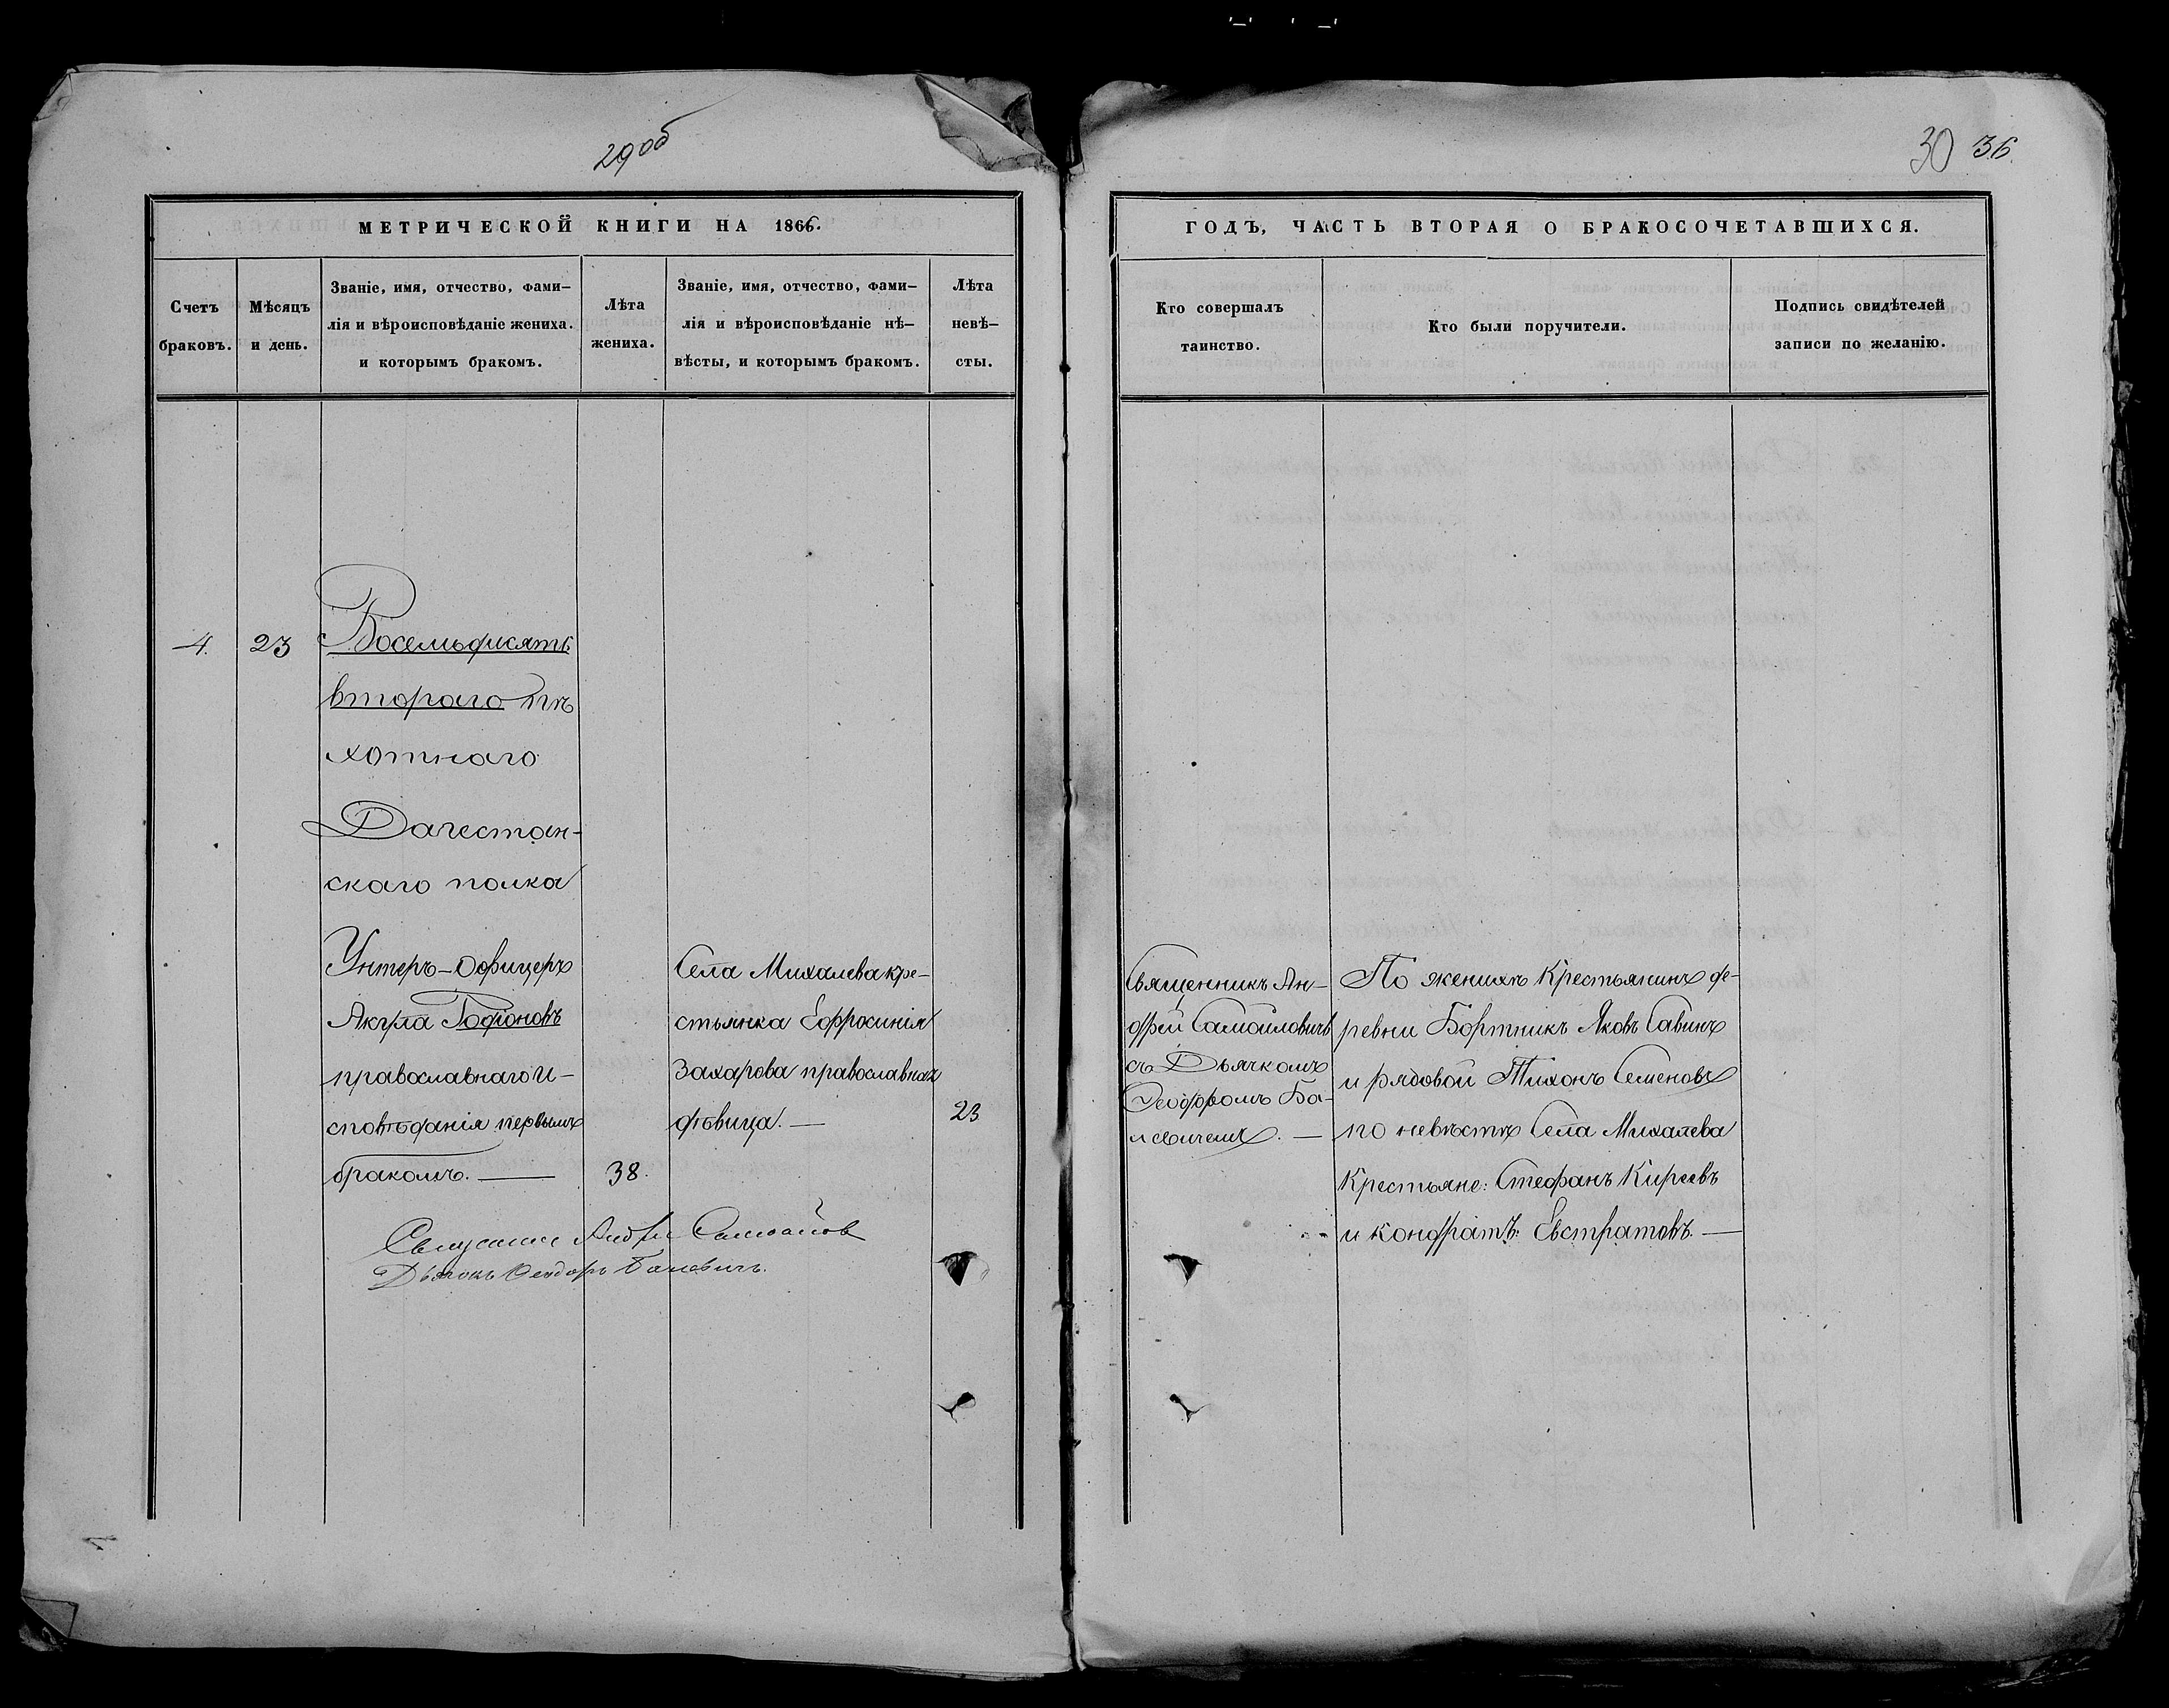 29об
30 36.
МЕТРИЧЕСКОЙ КНИГИ НА 1866.
ГОДЪ, ЧАСТЬ ВТОРАЯ О БРАКОСОЧЕТАВШИХСЯ.
Счетъ
браковъ.
Мѣсяцъ
и день.
Званіе, имя, отчество, фами-
лія и вѣроисповѣданіе жениха.
и которымъ бракомъ.
Лѣта
жениха.
Званіе, имя, отчество, фами-
лія и вѣроисповѣданіе нѣ-
вѣсты, и которымъ бракомъ.
Лѣта
невѣ-
сты.
Кто совершалъ
таинство.
Кто были поручители.
Подпись свидѣтелей
записи по желанію.
4.
23
Восемьдисятъ
втораго пѣ
хотнаго
Дагестан-
скаго полка
Унтеръ-Офицеръ
Акула
православнаго и-
сповѣданія первымъ
бракомъ. —
38.
Села Михалева кре-
стьянка Ефросинія
Захарова православная
дѣвица. —
23
Священникъ Ан-
дрей Самойловичъ
съ Дьячкомъ
Феодоромъ Ба-
левичемъ. —
По женихѣ Крестьянинъ де-
ревни Бортникъ Яковъ Савинъ
и рядовой Тихонъ Семеновъ
по невѣстѣ Села Михалева
Крестьяне: Стефанъ Киреевъ
и кондратъ: Евстратовъ. —
Андрей
Дьячокъ Феодоръ Балевичъ.